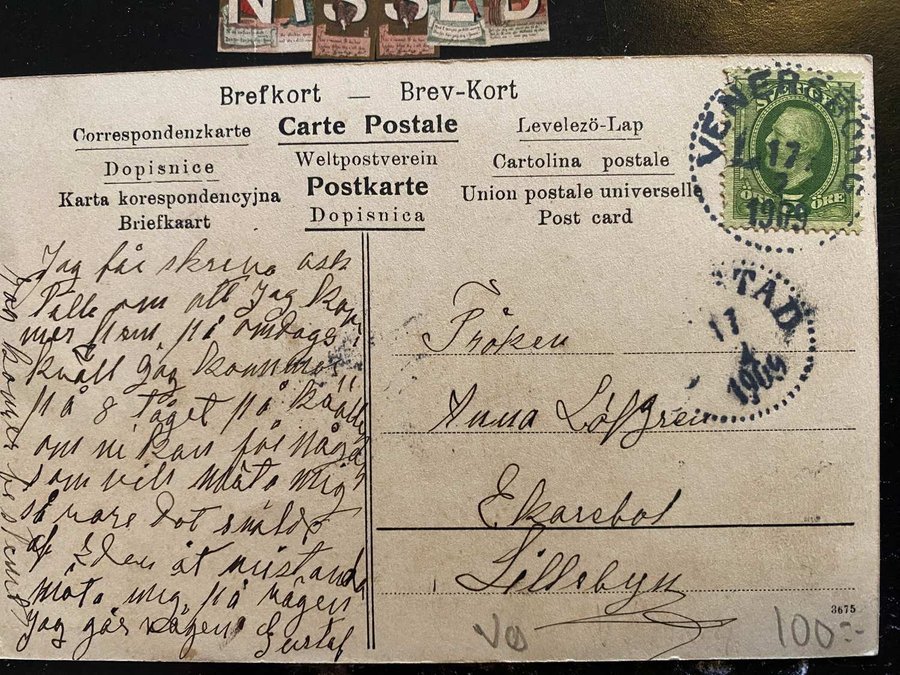 NISSED
Brefkort — Brev-Kort
Correspondenzkarte Carte Postale Levelezö-Lap
Dopisnice Weltpostverein Cartolina postale
Karta korespondencyjna Postkarte Union postale universelle
Briefkaart Dopisnica Post card
SVERIGE
ÖRE
VENERSBORG
17
1909
STAD
17
1909
Jag får skriva och
tala om att jag kom
mer hem på onsdags
kväll jag kommer
på 8 tåget på kväll
om ni kan få någon
som vill möta mig
så vore det snält
af Eder åt
möta mig på vägen
Jag går vägen Gustaf
jag komer bestämt
Fröken
Anna Löfgren
Ekarebol
Lillebyn
3675
100:-